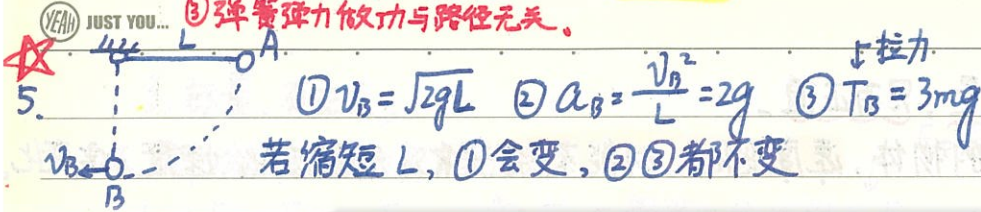 YEAH JUST YOU... ③弹簧弹力做功与路径无关。
L A
↓拉力
5. ①V_B=√2gL ②a_B=V_B²/L=2g ③T_B=3mg
V_B 若缩短L,①会变,②③都不变
B